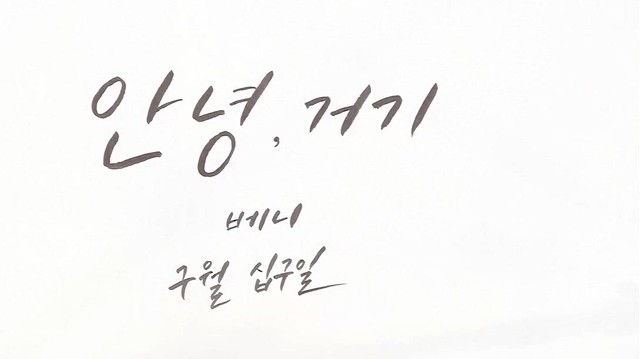 안녕, 거기
베니
구월 십구일